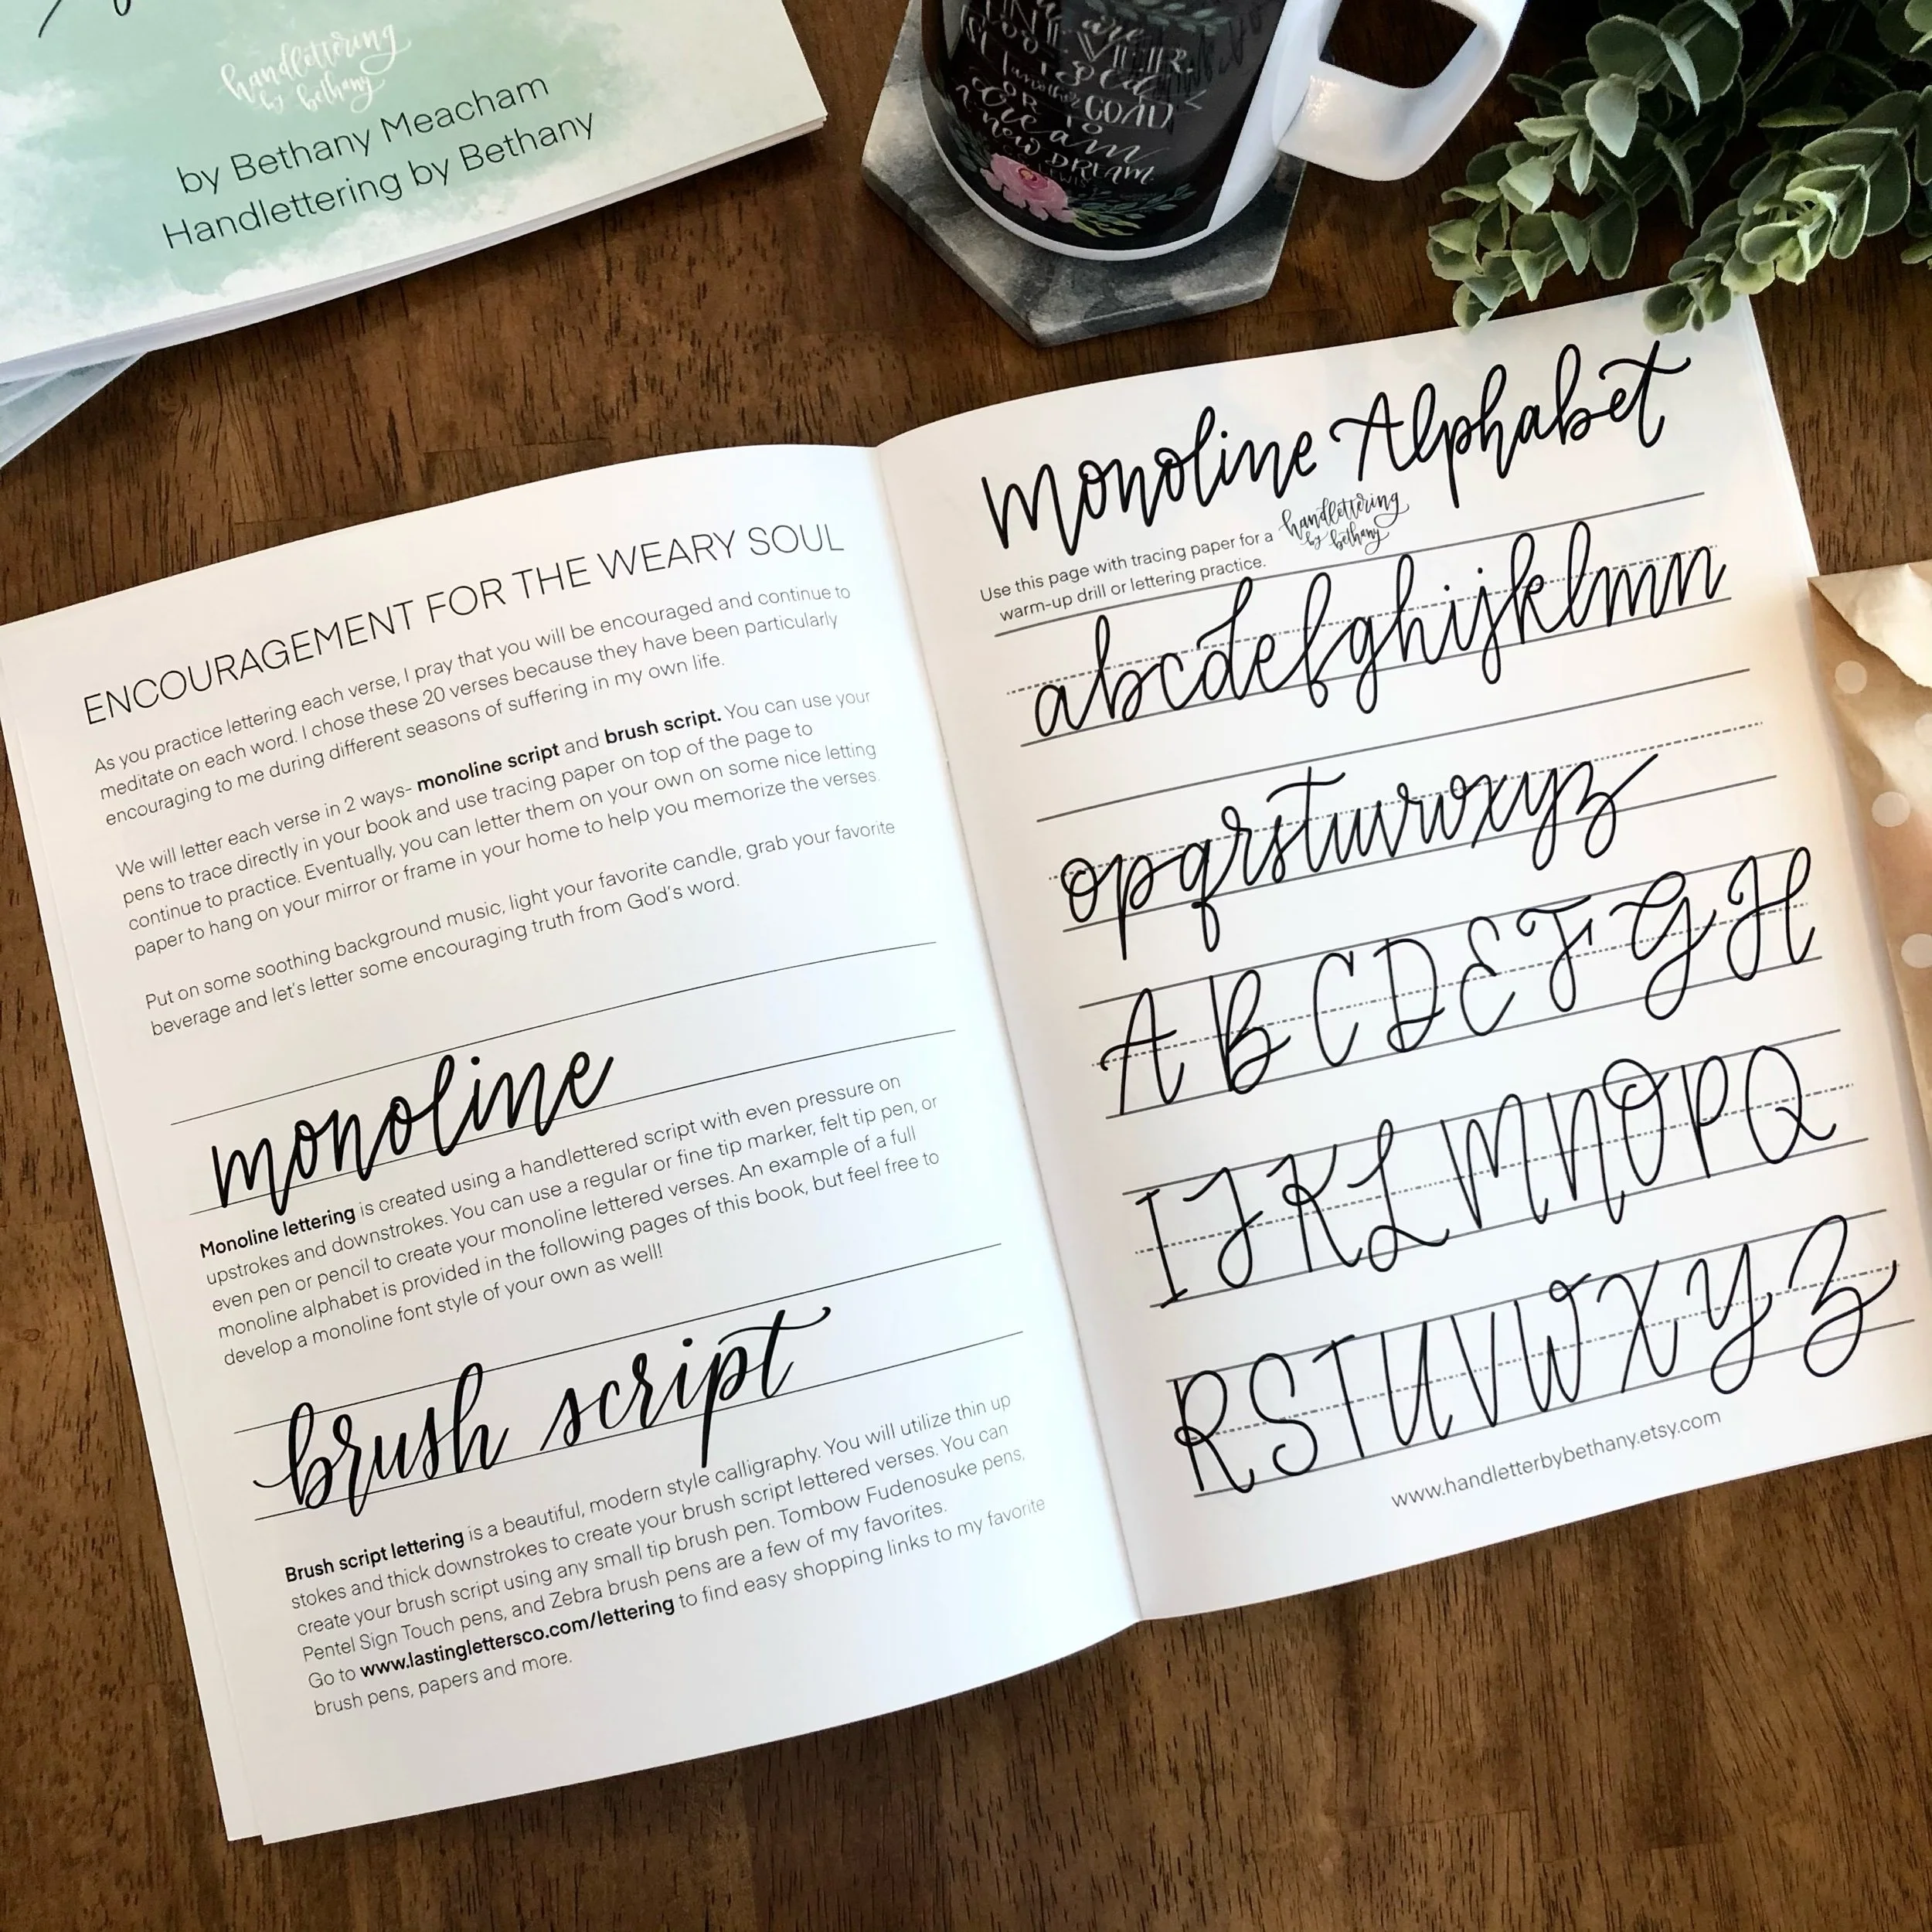 handlettering
by bethany
by Bethany Meacham
Handlettering by Bethany
are
GOAD
OR TO
NEW DREAM
ENCOURAGEMENT FOR THE WEARY SOUL
As you practice lettering each verse, I pray that you will be encouraged and continue to
meditate on each word. I chose these 20 verses because they have been particularly
encouraging to me during different seasons of suffering in my own life.
We will letter each verse in 2 ways- monoline script and brush script. You can use your
pens to trace directly in your book and use tracing paper on top of the page to
continue to practice. Eventually, you can letter them on your own on some nice letting
paper to hang on your mirror or frame in your home to help you memorize the verses.
Put on some soothing background music, light your favorite candle, grab your favorite
beverage and let's letter some encouraging truth from God's word.
monoline
Monoline lettering is created using a handlettered script with even pressure on
upstrokes and downstrokes. You can use a regular or fine tip marker, felt tip pen, or
even pen or pencil to create your monoline lettered verses. An example of a full
monoline alphabet is provided in the following pages of this book, but feel free to
develop a monoline font style of your own as well!
brush script
Brush script lettering is a beautiful, modern style calligraphy. You will utilize thin up
stokes and thick downstrokes to create your brush script lettered verses. You can
create your brush script using any small tip brush pen. Tombow Fudenosuke pens,
Pentel Sign Touch pens, and Zebra brush pens are a few of my favorites.
Go to www.lastinglettersco.com/lettering to find easy shopping links to my favorite
brush pens, papers and more.
Monoline Alphabet
Use this page with tracing paper for a
warm-up drill or lettering practice.
handlettering
by bethany
abcdefghijklmn
opqrstuvwxyz
A B C D E F G H
I J K L M N O P Q
R S T U V W X Y Z
www.handletterbybethany.etsy.com